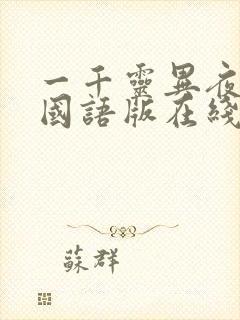 一千靈異夜
國語版在綫
蘇群